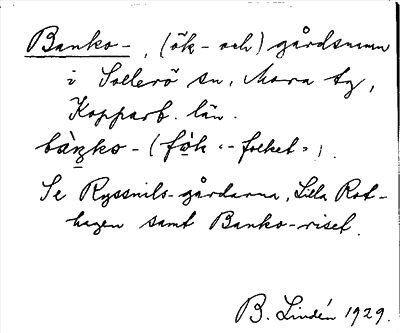 Banko-, (ök- och) gårdsnamn
i Sollerö sn, Mora tg,
Kopparb. län.
bàŋko- (fo̤k "-folket").
Se Ryssnils-gårdarna, Lilla Rot-
hagen samt Banko-riset.
B. Lindén 1929.